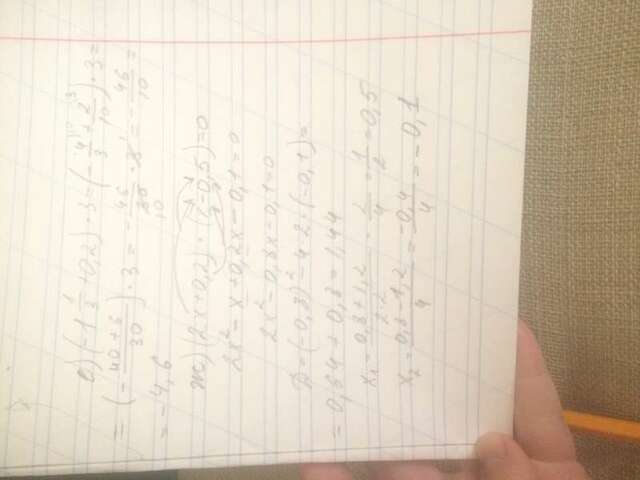 е) (-1 1/3 + 0,2) · 3 = (- 4/3 + 2/10) · 3 =
= (- 40+6/30) · 3 = - 46/30 · 3 = - 46/10 =
= - 4,6
ж) (2x + 0,2) · (x - 0,5) = 0
2x² - x + 0,2x - 0,1 = 0
2x² - 0,8x - 0,1 = 0
D = (-0,8)² - 4 · 2 · (-0,1) =
= 0,64 + 0,8 = 1,44
x₁ = 0,8+1,2/2·2 = 2/4 = 1/2 = 0,5
x₂ = 0,8-1,2/4 = -0,4/4 = -0,1